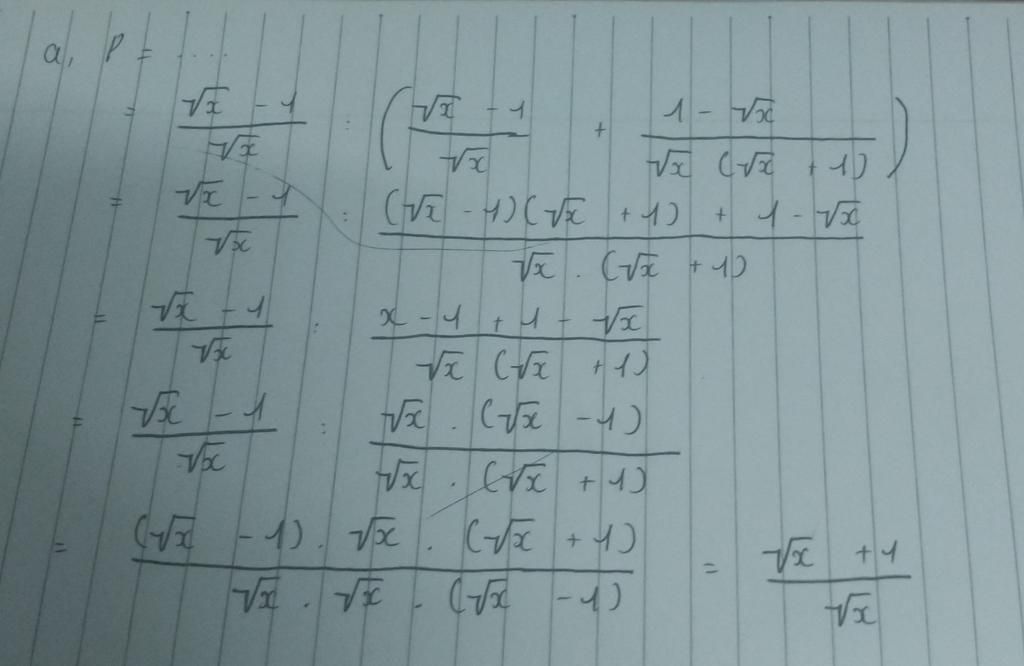 a, P = ....
= (√x - 1)/√x : ((√x - 1)/√x + (1 - √x)/(√x (√x + 1)))
= (√x - 1)/√x : ((√x - 1)(√x + 1) + 1 - √x)/(√x . (√x + 1))
= (√x - 1)/√x : (x - 1 + 1 - √x)/(√x (√x + 1))
= (√x - 1)/√x : (√x . (√x - 1))/(√x . (√x + 1))
= ((√x - 1) . √x . (√x + 1))/(√x . √x . (√x - 1)) = (√x + 1)/√x